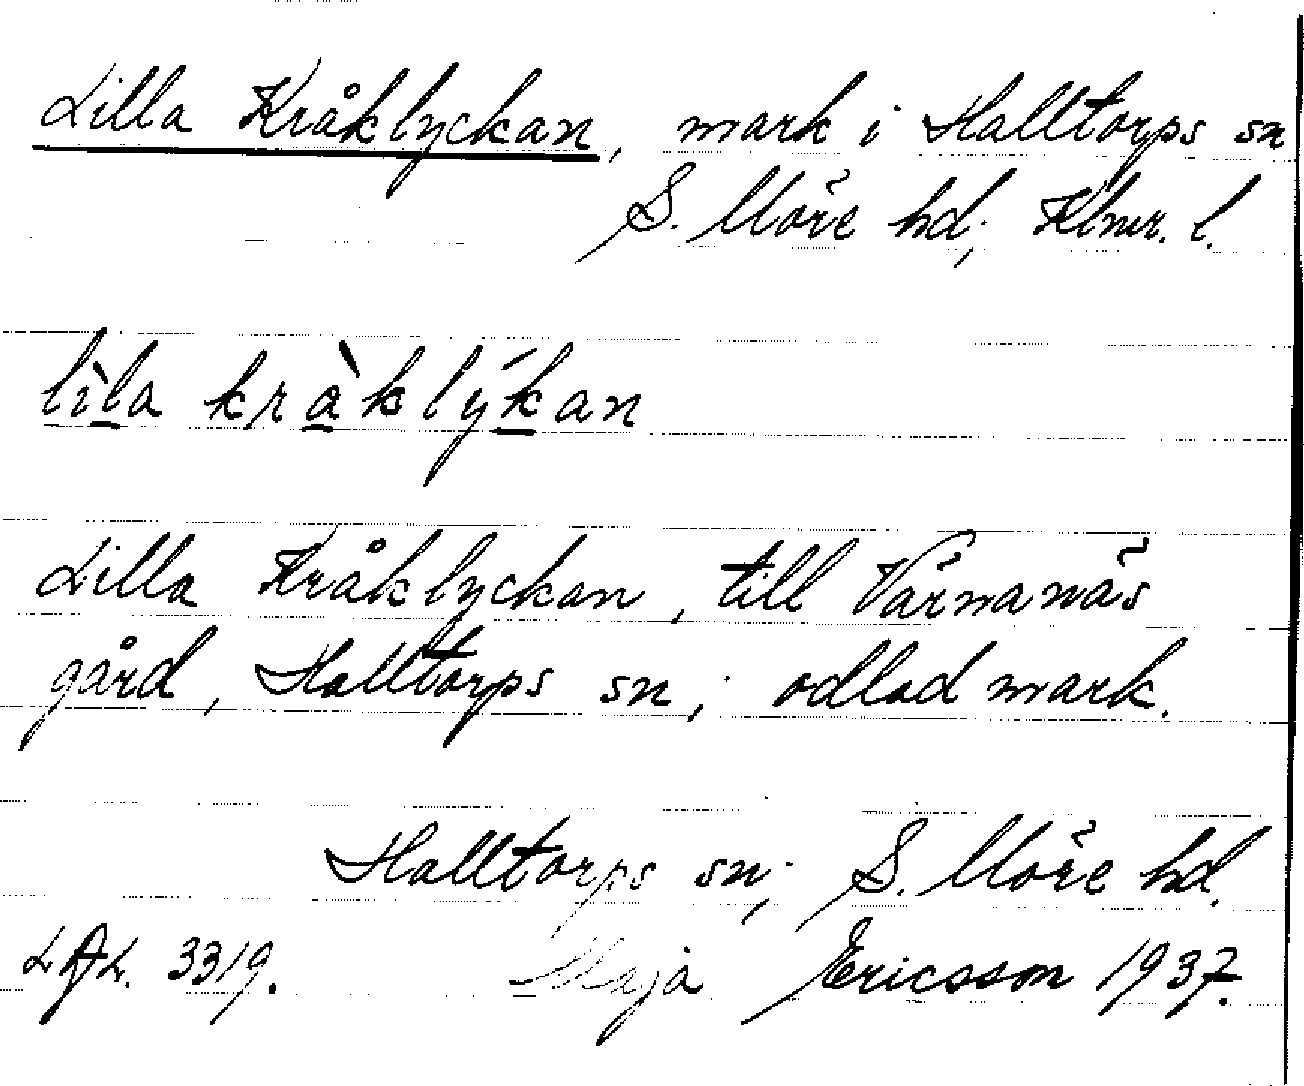 Lilla Kråklyckan, mark i Halltorps sn
S. Möre hd; Klmr. l.
lìla kràklýkan
Lilla Kråklyckan, till Värnanäs
gård, Halltorps sn; odlad mark.
Halltorps sn; S. Möre hd.
LAL. 3319. Maja Ericsson 1937.